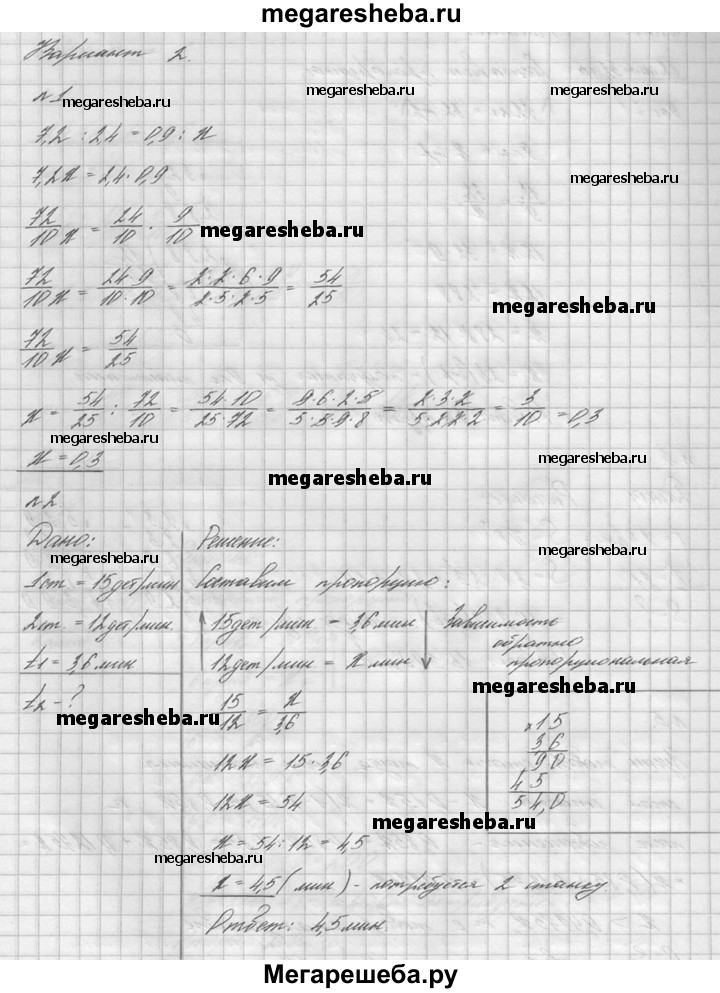 megaresheba.ru
Вариант 2.
№1
megaresheba.ru
7,2 : 2,4 = 0,9 : x
7,2x = 2,4 · 0,9
megaresheba.ru
72/10 x = 24/10 · 9/10
megaresheba.ru
72/10 x = 24·9/10·10 = 2·2·6·9/2·5·2·5 = 54/25
megaresheba.ru
72/10 x = 54/25
x = 54/25 : 72/10 = 54·10/25·72 = 9·6·2·5/5·5·9·8 = 2·3·2/5·2·2·2 = 3/10 = 0,3
megaresheba.ru
megaresheba.ru
x = 0,3
megaresheba.ru
№2
Дано:
megaresheba.ru
1 ст = 15 дет/мин
2 ст = 12 дет/мин.
t1 = 3,6 мин
t2 - ?
megaresheba.ru
Решение:
megaresheba.ru
Составим пропорцию:
15 дет/мин – 3,6 мин
12 дет/мин = x мин
Зависимость
обратно
пропорциональная
megaresheba.ru
15/12 = x/3,6
12x = 15 · 3,6
12x = 54
megaresheba.ru
x = 54 : 12 = 4,5
megaresheba.ru
x = 4,5 (мин) - потребуется 2 станку.
Ответ: 4,5 мин.
x 15
3,6
90
45
54,0
Мегарешеба.ру